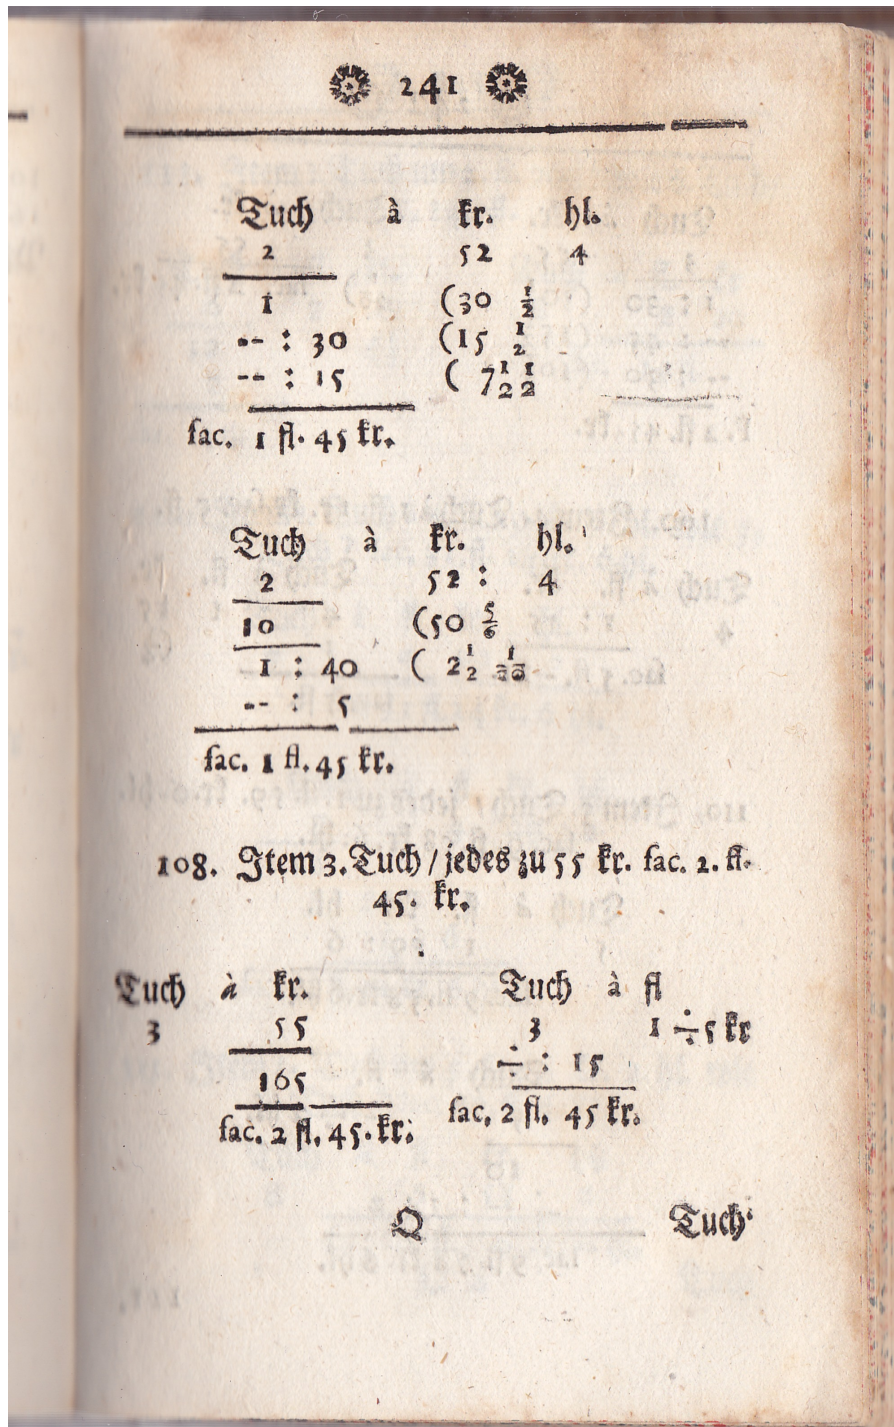 241
Tuch à kr. hl.
2 52 4
1 (30 1/2
-- : 30 (15 1/2
-- : 15 ( 7 1/2 1/2
fac. 1 fl. 45 kr.
Tuch à kr. hl.
2 52 : 4
10 (50 5/6
1 : 40 ( 2 1/2 1/20
-- : 5
fac. 1 fl. 45 kr.
108. Item 3. Tuch / jedes zu 55 kr. fac. 2. fl.
45. kr.
Tuch à kr.
3 55
165
fac. 2 fl. 45. kr.
Tuch à fl
3 1 ÷ 5 kr
÷ : 15
fac, 2 fl. 45 kr.
Q Tuch